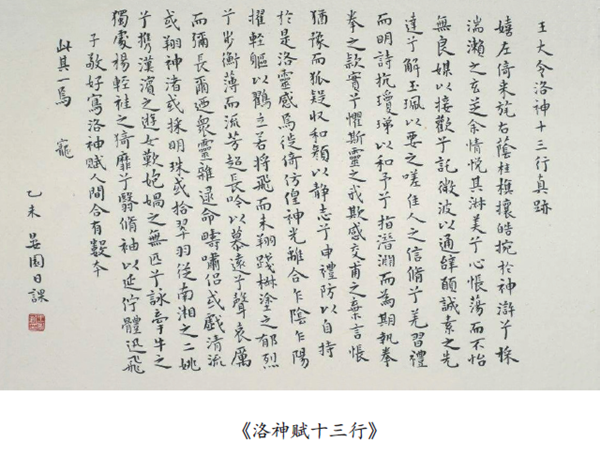 王大令洛神十三行真跡
嬉左倚采旄右蔭桂旗攘皓捥於神滸兮採
湍瀨之玄芝余情悅其淋美兮心悵蕩而不怡
無良媒以接歡兮託微波以通辭願誠素之先
達兮解玉珮以要之嗟佳人之信脩兮羌習禮
而明詩抗瓊珶以和予兮指潛淵而為期執拳
拳之款實兮懼斯靈之我欺感交甫之棄言悵
猶豫而狐疑收和顏以静志兮申禮防以自持
於是洛靈感焉徙倚仿偟神光離合乍陰乍陽
擢輕軀以鶴立若將飛而未翔踐椒塗之郁烈
兮步衡薄而流芳超長吟以慕遠兮聲哀厲
而彌長爾迺衆靈雜遝命疇嘯侶或戲清流
或翔神渚或採明珠或拾翠羽從南湘之二姚
兮攜漢濱之遊女歎媧之無匹兮詠牽牛之
獨處揚輕袿之猗靡兮翳脩袖以延佇體迅飛
子敬好寫洛神賦人間合有數本
此其一焉 寵
乙未 園日課
《洛神赋十三行》